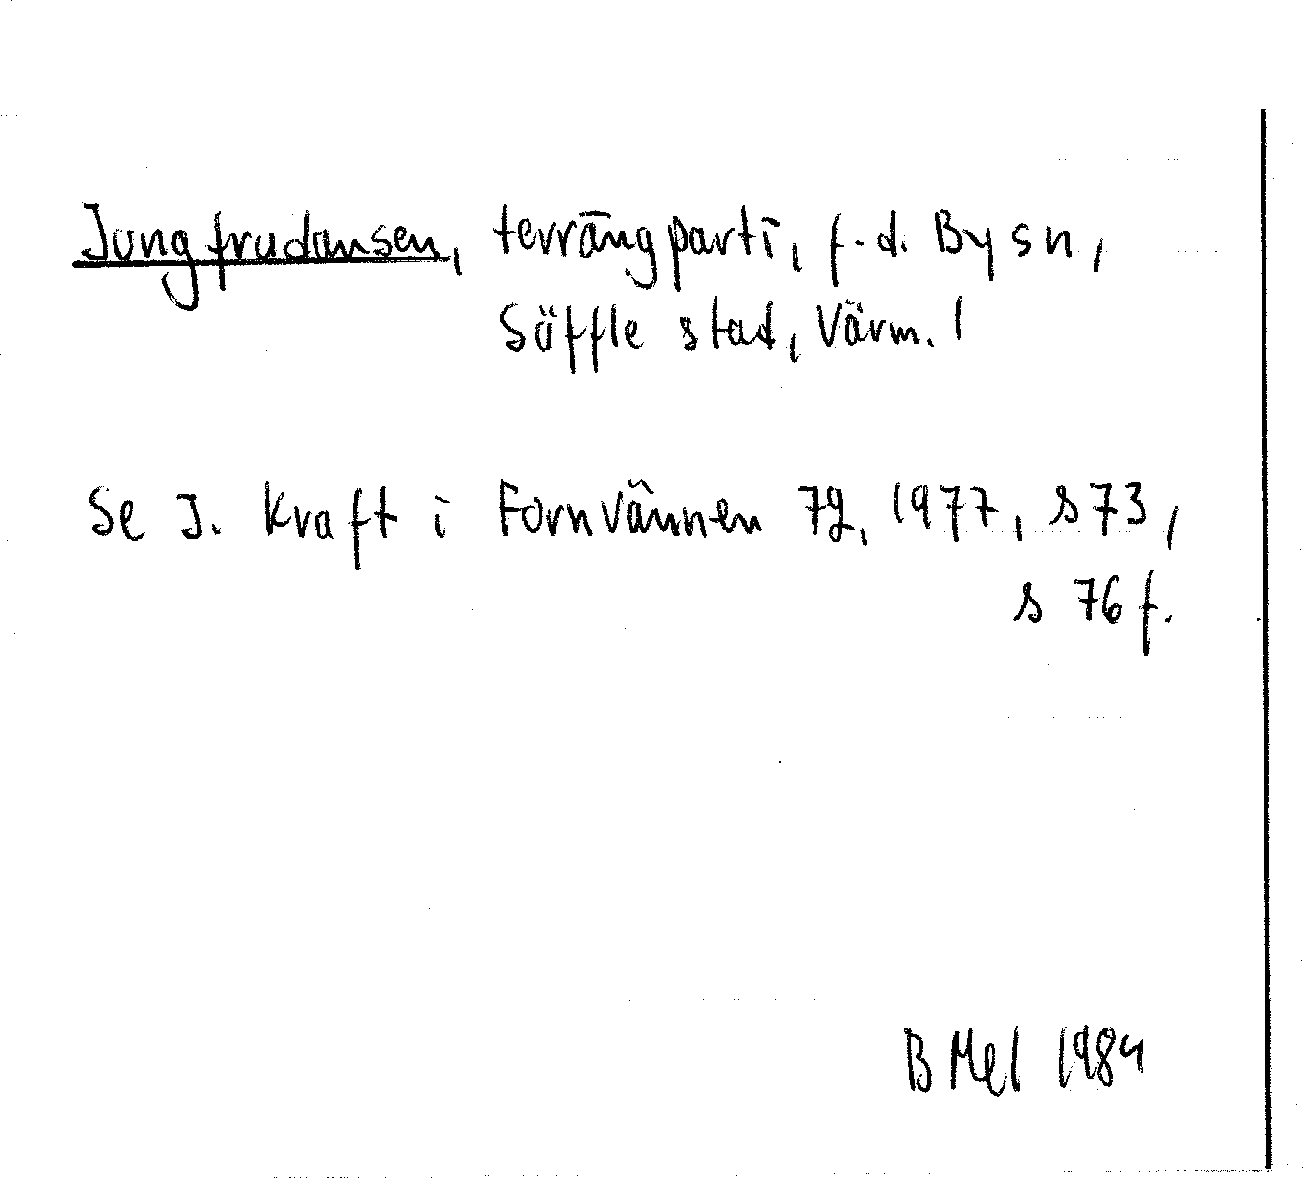 Jungfrudansen, terrängparti, f.d. Bysn,
Säffle stad, Värm. l
Se J. Kraft i Fornvännen 72, 1977, s 73,
s 76 f.
B Mel 1984